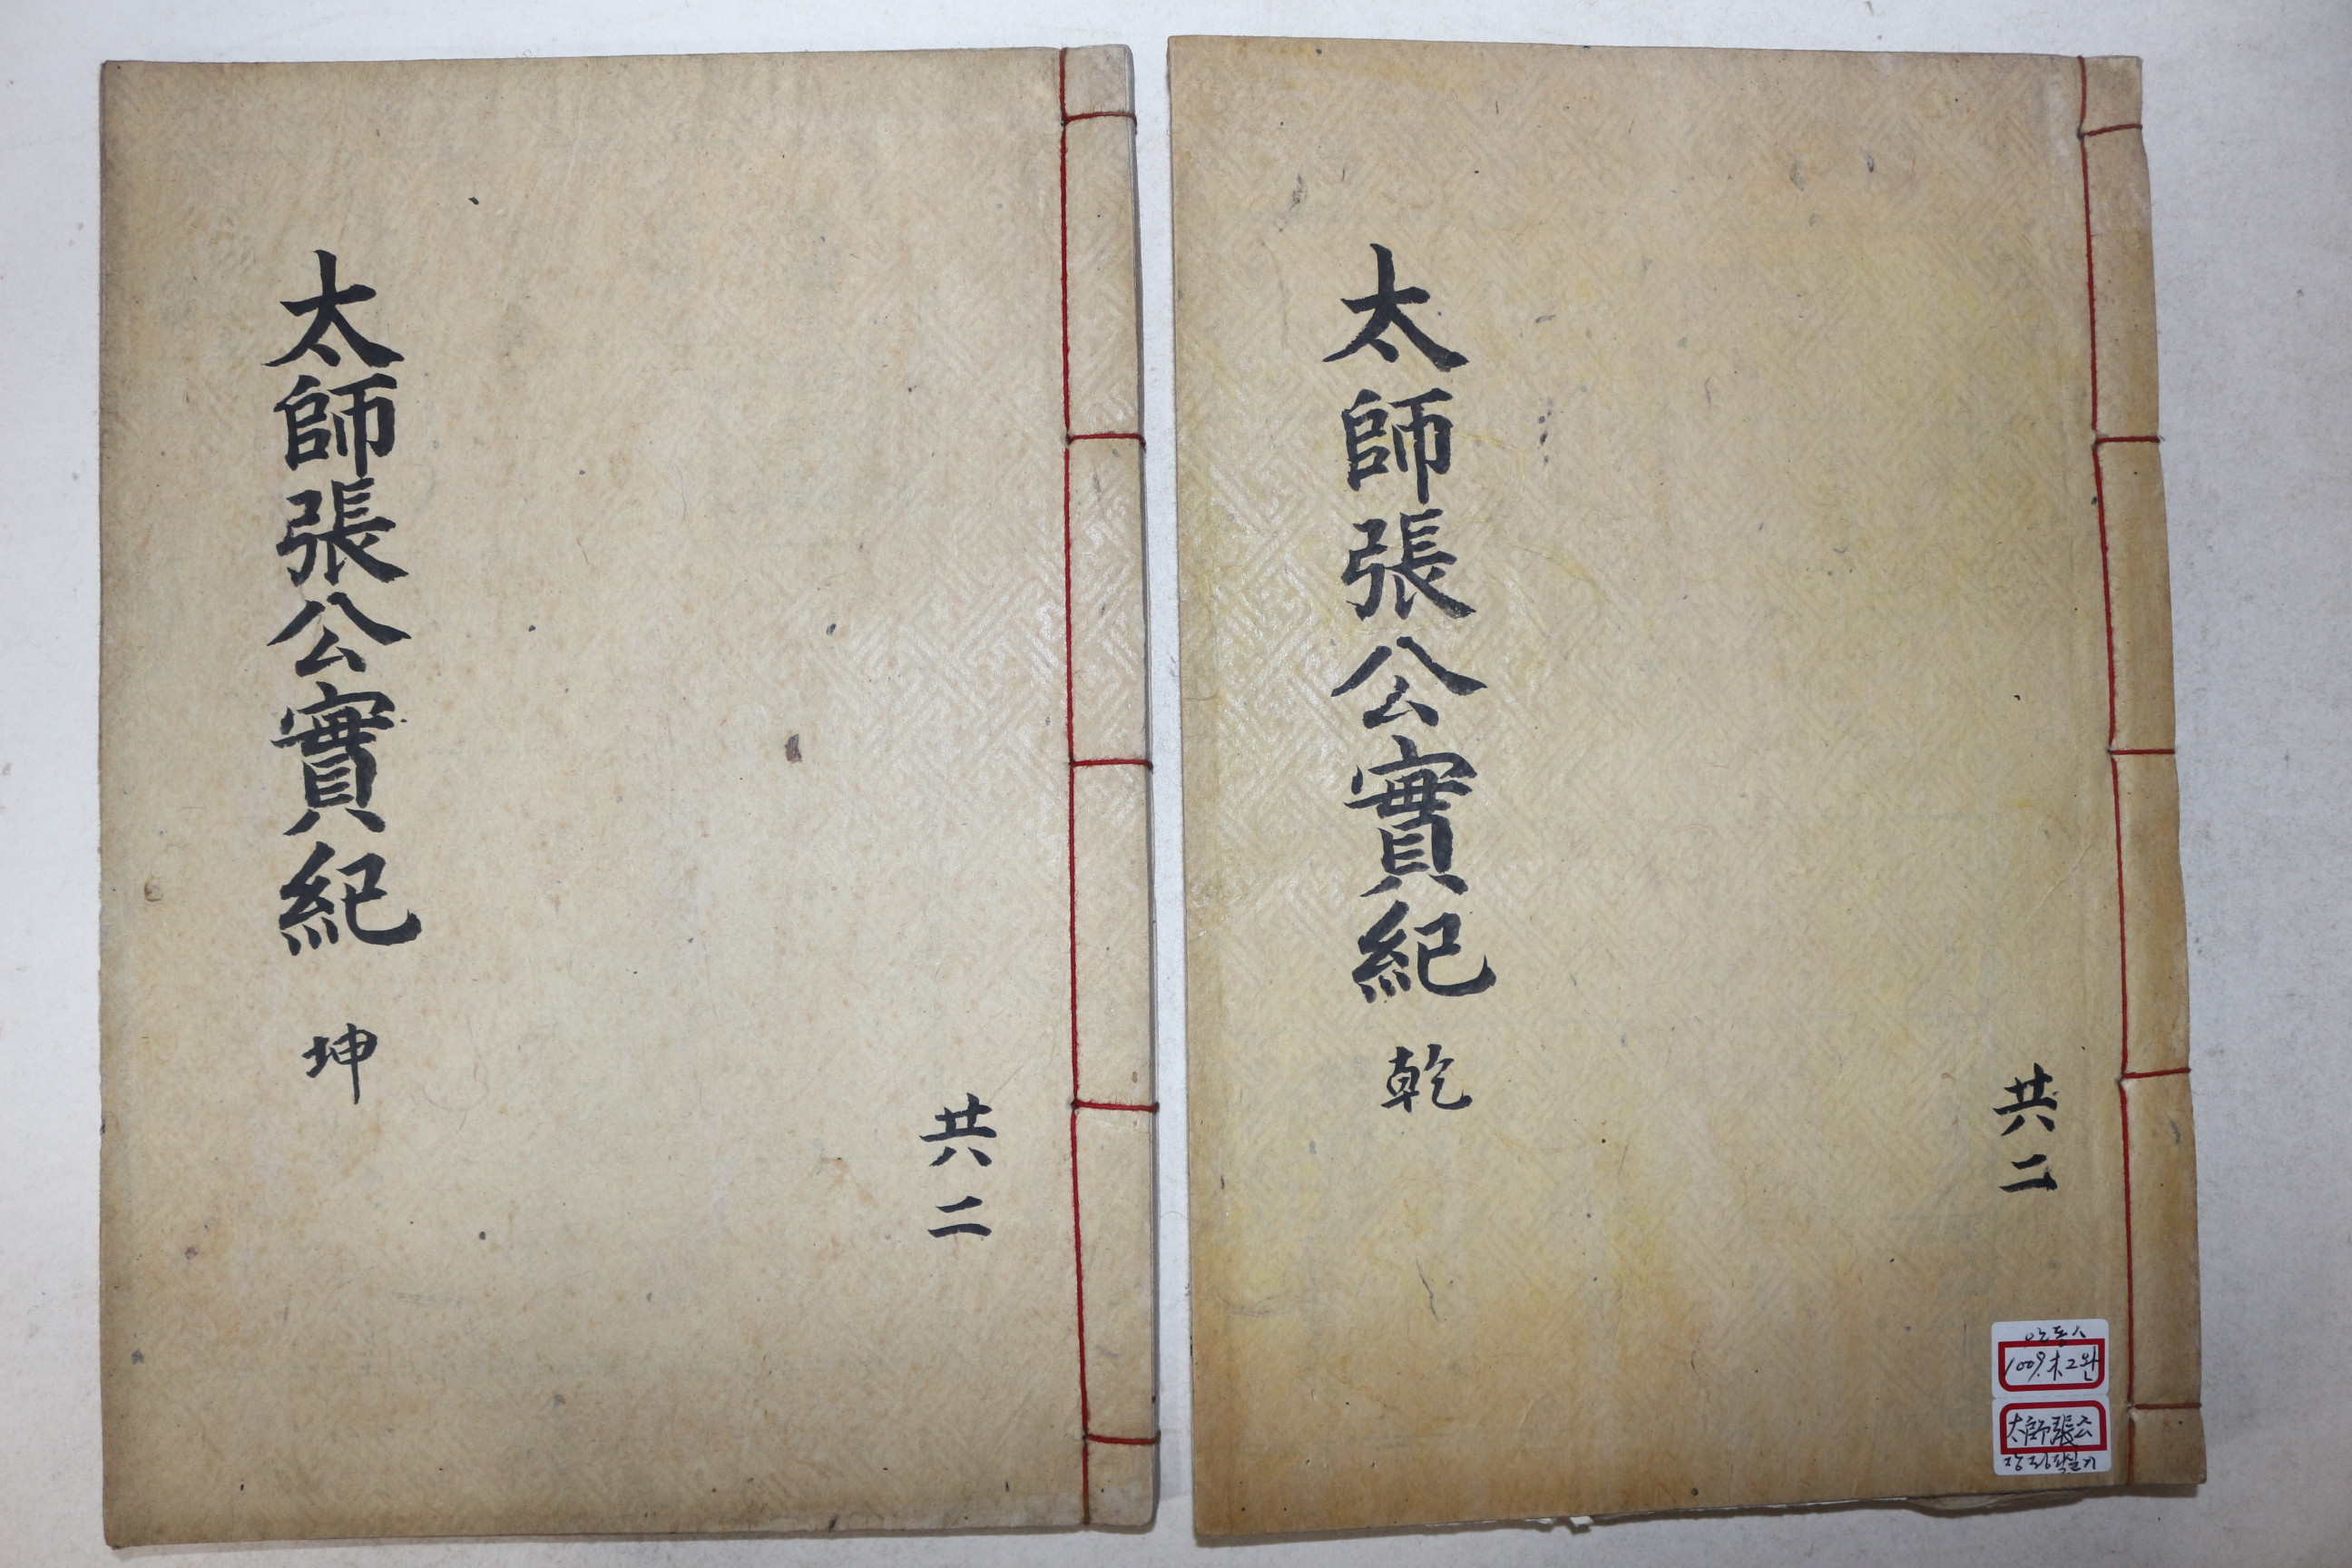 太師張公實紀 坤
共二
太師張公實紀 乾
共二
안동스
1009.木2완
太師張公
장정필실기